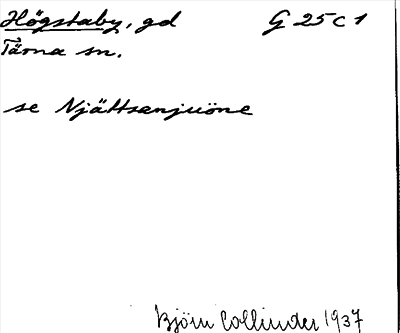 Högstaby, gd G 25 C 1
Tärna sn.
se Njättsanjuöne
Björn Collinder 1937